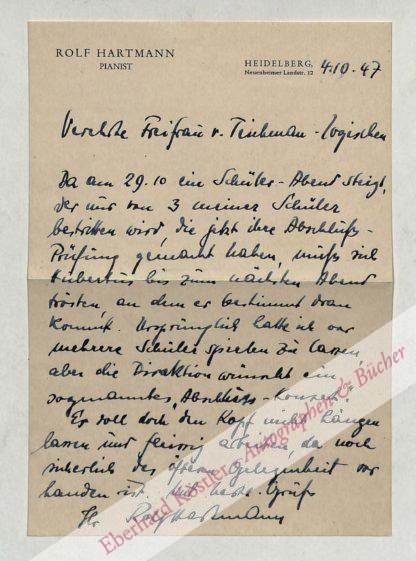 ROLF HARTMANN
PIANIST
HEIDELBERG,
Neuenheimer Landstr. 12
4.10.47
Verehrte Freifrau v. Teichman-Logischen
Da am 29.10 ein Schüler-Abend steigt,
der nur von 3 meiner Schüler
bestritten wird, die jetzt ihre Abschluß-
Prüfung gemacht haben, muß sich
Hubertus bis zum nächsten Abend
trösten, an dem er bestimmt dran
kommt. Ursprünglich hatte ich vor
mehrere Schüler spielen zu lassen,
aber die Direktion wünscht ein
sogenanntes „Abschluss-Konzert".
Er soll doch den Kopf nicht hängen
lassen und fleissig arbeiten, da noch
sicherlich des öftern Gelegenheit vor
handen ist. Mit besten Grüß
Ihr Rolf Hartmann
Eberhard Köstler Autographen & Bücher